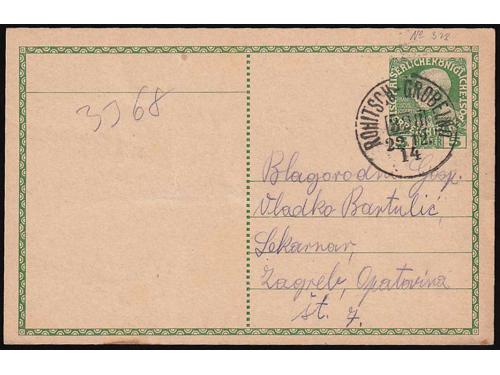 No 322
3368
KAISERLICHEKÖNIGLICHE
5
ROHITSCH GROBELNO
22
14
Blagorodni Gosp.
Vladko Bartulić,
Lekarnar,
Zagreb, Opatovina
št. 7.